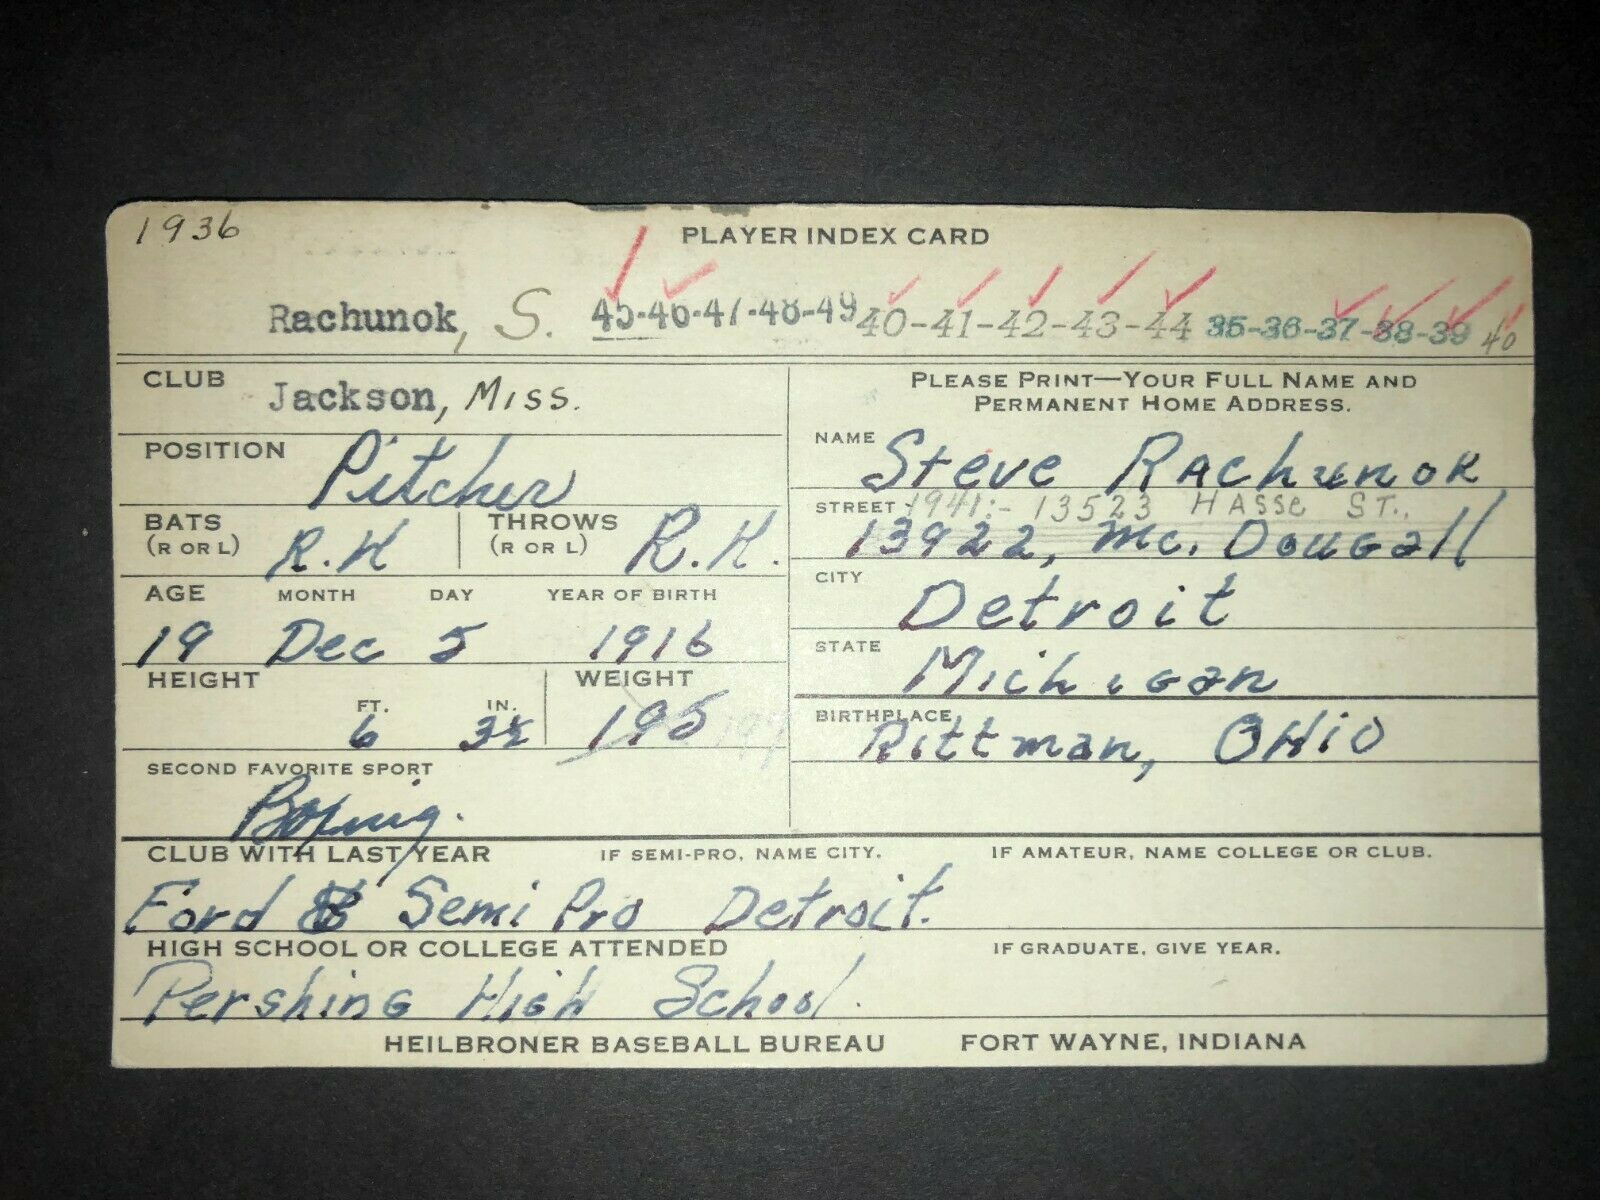 1936
PLAYER INDEX CARD
Rachunok, S. 45-46-47-48-49 40-41-42-43-44 35-36-37-38-39 40
CLUB Jackson, Miss.
POSITION Pitcher
BATS (R OR L) R.H THROWS (R OR L) R.H.
AGE MONTH DAY YEAR OF BIRTH
19 Dec 5 1916
HEIGHT WEIGHT
FT. IN.
6 3½ 195
SECOND FAVORITE SPORT
Boxing.
PLEASE PRINT—YOUR FULL NAME AND
PERMANENT HOME ADDRESS.
NAME Steve Rachunok
STREET 1941:- 13523 HASSE ST.,
13922, Mc. Dougall
CITY Detroit
STATE Michigan
BIRTHPLACE Rittman, OHio
CLUB WITH LAST YEAR IF SEMI-PRO, NAME CITY. IF AMATEUR, NAME COLLEGE OR CLUB.
Ford Semi Pro Detroit.
HIGH SCHOOL OR COLLEGE ATTENDED IF GRADUATE, GIVE YEAR.
Pershing High School.
HEILBRONER BASEBALL BUREAU FORT WAYNE, INDIANA